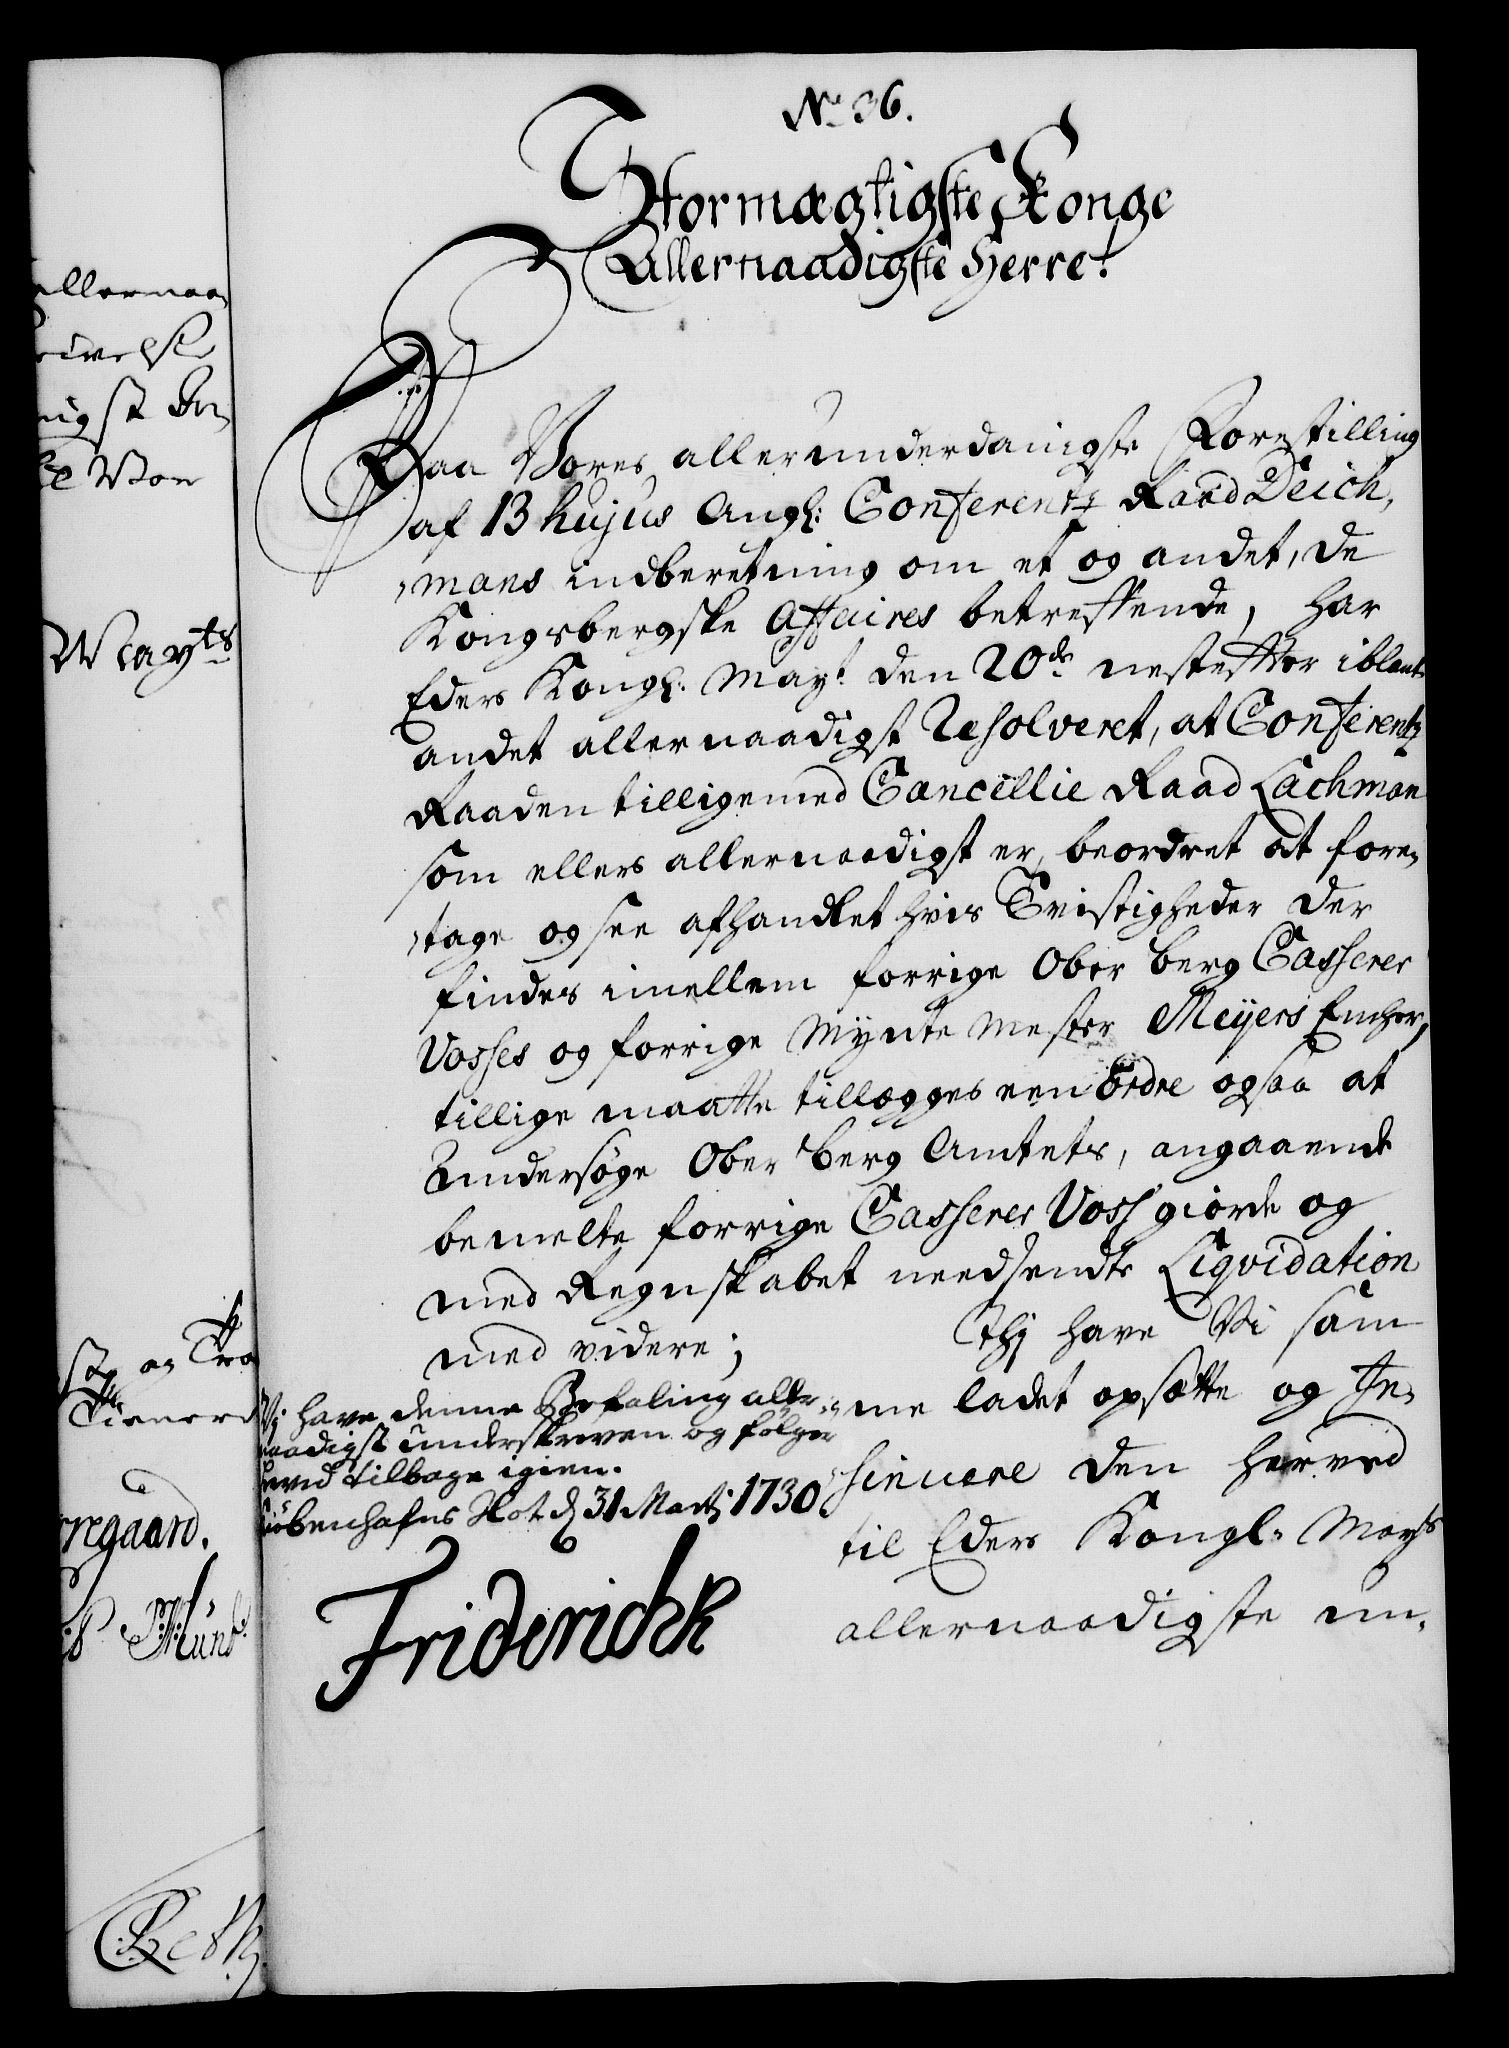 No 36.
Stormægtigste Konge
Allernaadigste Herre!
Paa Vores allerunderdanigste Forestilling
af 13 hujus Angl: Conferentz Raad Deich,
,mans indberetning om et og andet, de
Kongsbergske Affaires betreffende, har
Eders Kongl: Mayt den 20de nesteffter iblant
andet allernaadigst Resolveret, at Conferentz
Raaden tilligemed Cancellie Raad Lachman
som ellers allernaadigst er beordret at fore,
,tage og see afhandlet hvis Tvistigheder der
findes imellem forrige Ober Berg Casserer
Vosses og forrige Mynte Mester Meyers Encher,
tillige maatte tillægges een Ordre ogsaa at
Undersøge Ober Berg Amtets, angaaende
bemelte forrige Casserer Voss giorde og
med Regnskabet needsendte Liqvidation
med videre; Thj have Vi sam
me ladet opsætte og In,
sinuere den herved
til Eders Kongl. Mayts
allernaadigste un,
Vj have denne Befaling aller-
naadigst underskreven og følger
herved tilbage igien.
Kiøbenhafns Slot d 31 Martj 1730
Friderich R
allernaa,
Mayts
og Tro
Tienere
regaard.